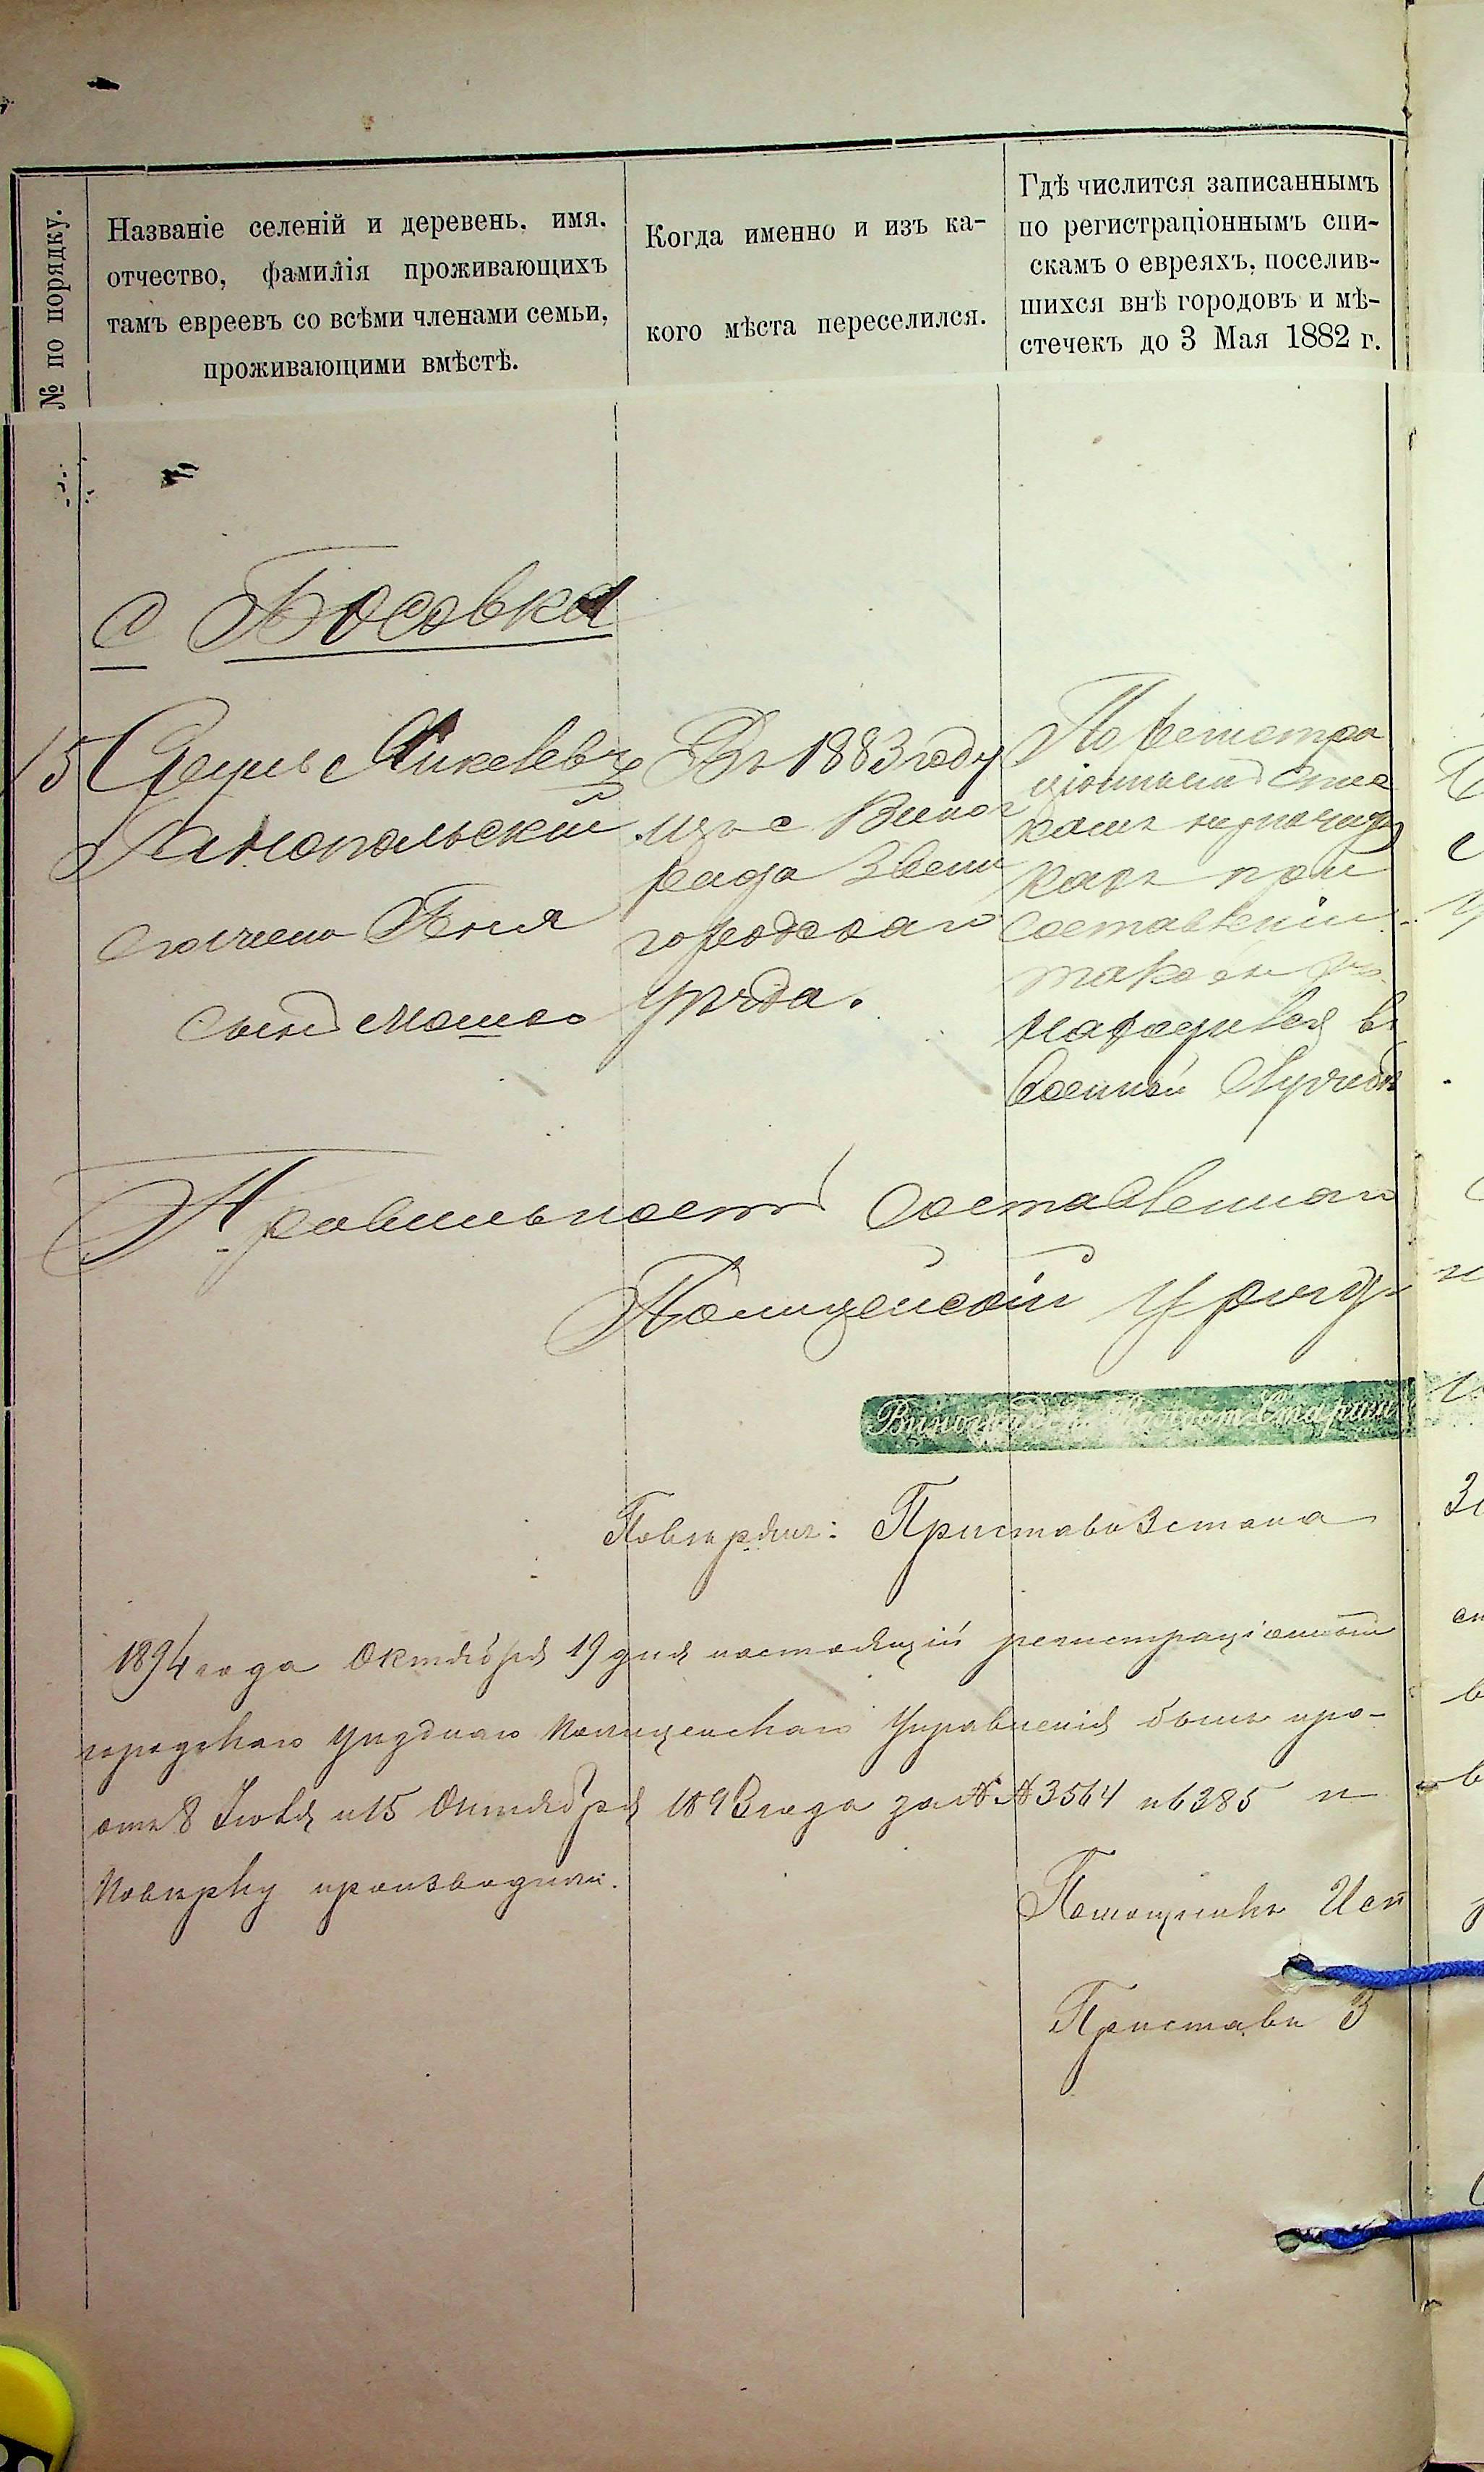 № по порядку.
Названіе селеній и деревень, имя,
отчество, фамилія проживающихъ
тамъ евреевъ со всѣми членами семьи,
проживающими вмѣстѣ.
Когда именно и изъ ка-
кого мѣста переселился.
Гдѣ числится записаннымъ
по регистраціоннымъ спи-
скамъ о евреяхъ, поселив-
шихся внѣ городовъ и мѣ-
стечекъ до 3 Мая 1882 г.
с Босовка
15
Тинопольский
сынъ Мошко
Въ 1883 году
изъ с Виног
рада Звени
городскаго
уѣзда.
По регистра
ціоннымъ спис
камъ
какъ при
составленіи
находился въ
военной службѣ
Правильность составленнаго
Полицейскій Уряд
Виноградск. Волост. Старшин
Повѣрялъ: Приставъ 3 стана
1894 года Октября 19 дня настоящій регистраціонный
городскаго Уѣзднаго Полицейскаго Управленія былъ про-
отъ 8 Іюля и 15 Октября 1893 года за №№ 3564 и 6385 и
Повѣрку производили:
Помощникъ Исп
Приставъ 3